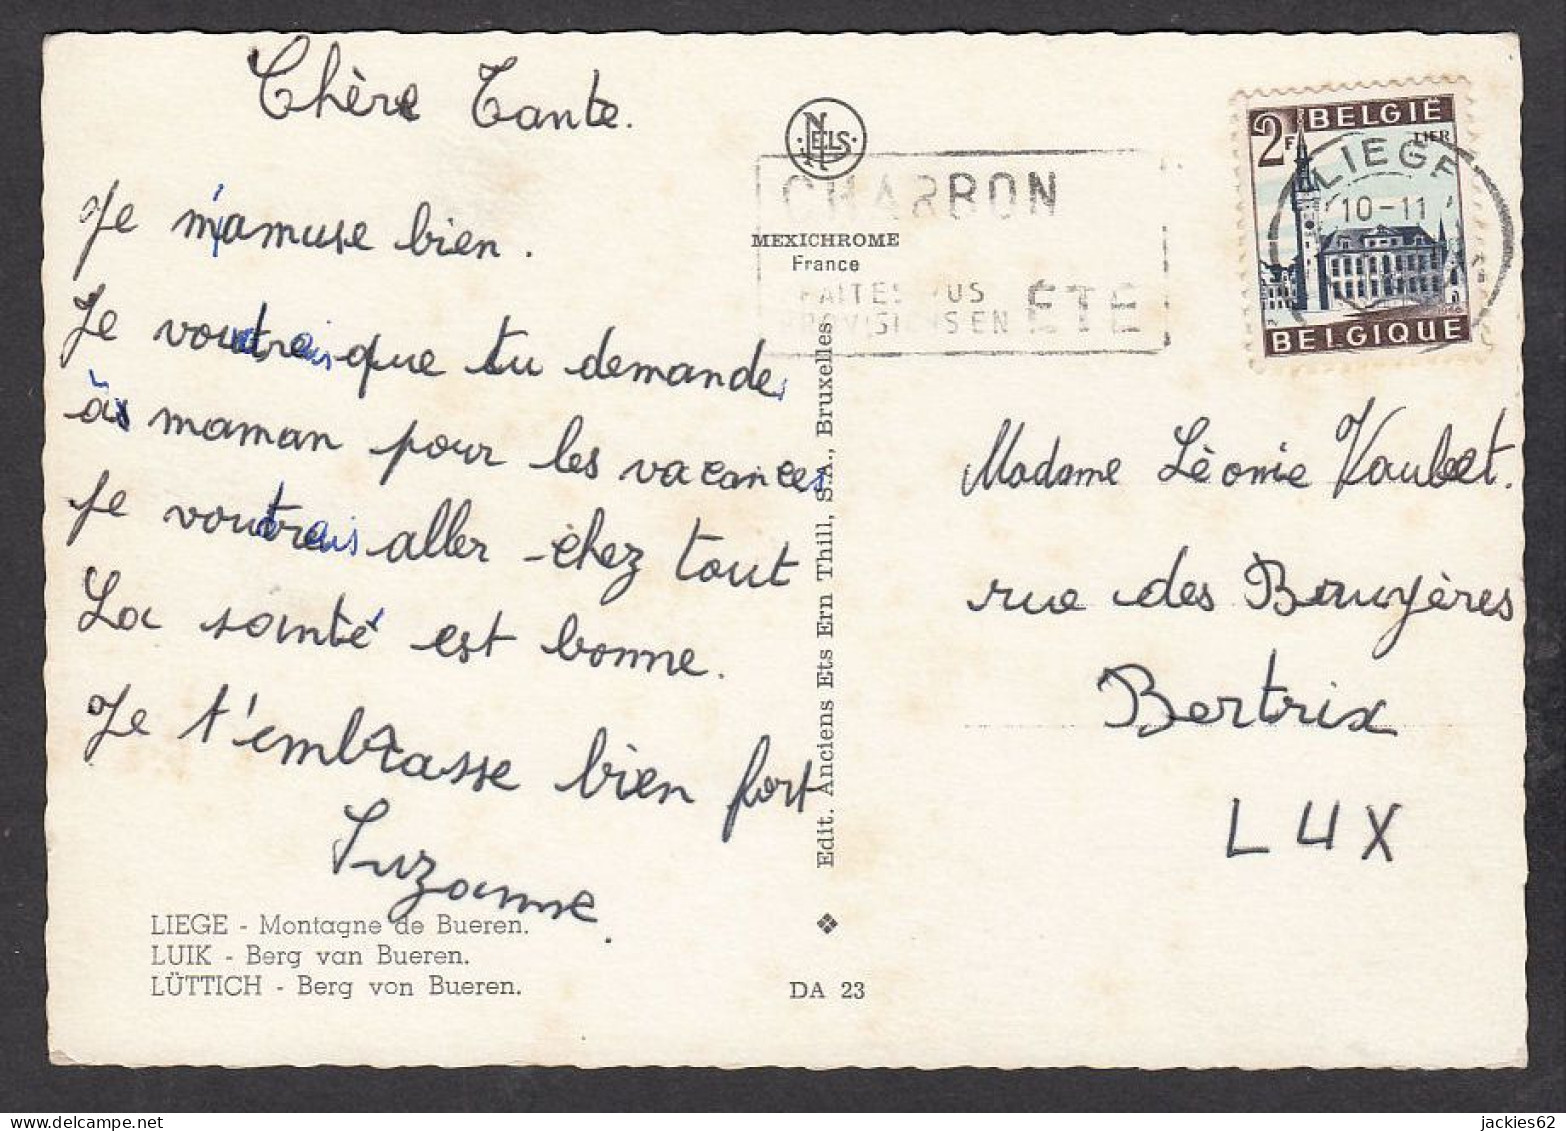 Chère Tante.
Je m'amuse bien.
Je voudrais que tu demandes
à maman pour les vacances
Je voudrais aller chez tout
La santé est bonne.
Je t'embrasse bien fort
Suzanne.
LIEGE - Montagne de Bueren.
LUIK - Berg van Bueren.
LÜTTICH - Berg von Bueren.
NELS
CHARBON
FAITES VOS
PROVISIONS EN ÉTÉ
MEXICHROME
France
Edit. Anciens Ets Ern Thill, S.A., Bruxelles
DA 23
BELGIË
2F
LIER
BELGIQUE
LIEGE
10-11
Madame Léonie
rue des Bruyères
Bertrix
LUX
jackies62